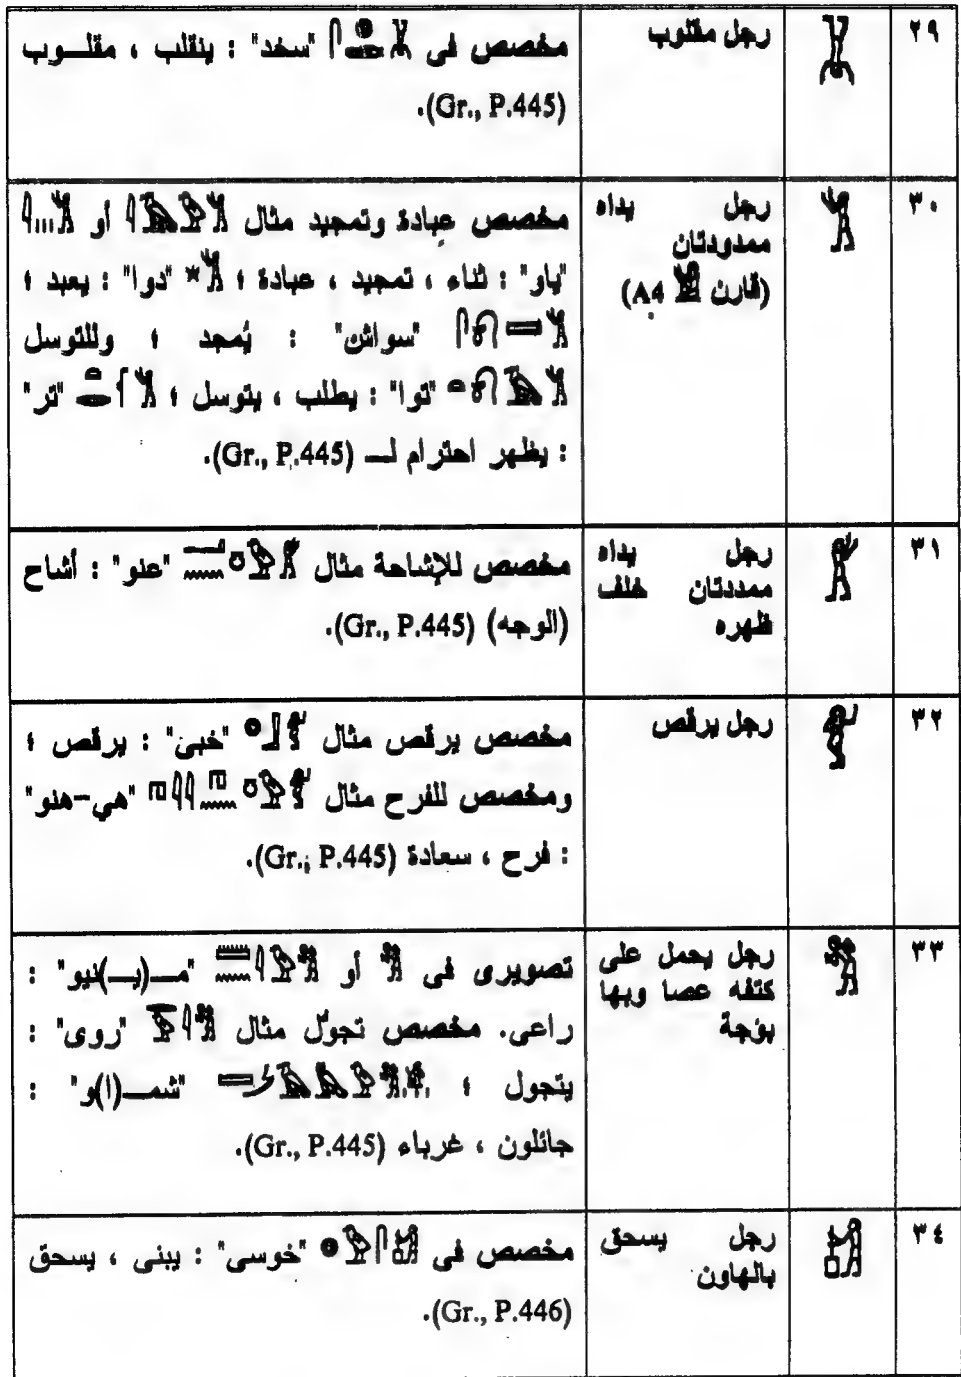 ٢٩
رجل مقلوب
مخصص فى 𓀢 "سخد" : ينقلب ، مقلـــوب
(Gr., P.445).
٣٠
رجل يداه
ممدودتان
(قارن A4)
مخصص عبادة وتمجيد مثال أو
"ياو" : ثناء ، تمجيد ، عبادة ؛ "دوا" : يعبد ؛
"سواش" : يُمجد ؛ وللتوسل
"توا" : يطلب ، يتوسل ؛ "تر"
: يظهر احترام لـــ (Gr., P.445).
٣١
رجل يداه
ممددتان خلف
ظهره
مخصص للإشاحة مثال "عنو" : أشاح
(الوجه) (Gr., P.445).
٣٢
رجل يرقص
مخصص يرقص مثال "خبى" : يرقص ؛
ومخصص للفرح مثال "هي-هنو"
: فرح ، سعادة (Gr., P.445).
٣٣
رجل يحمل على
كتفه عصا وبها
بؤجة
تصويرى فى أو "مـــ(يـــ)نيو" :
راعى. مخصص تجوّل مثال "روى" :
يتجول ؛ "شمـــ(ا)و" :
جائلون ، غرباء (Gr., P.445).
٣٤
رجل يسحق
بالهاون
مخصص فى "خوسى" : يبنى ، يسحق
(Gr., P.446).